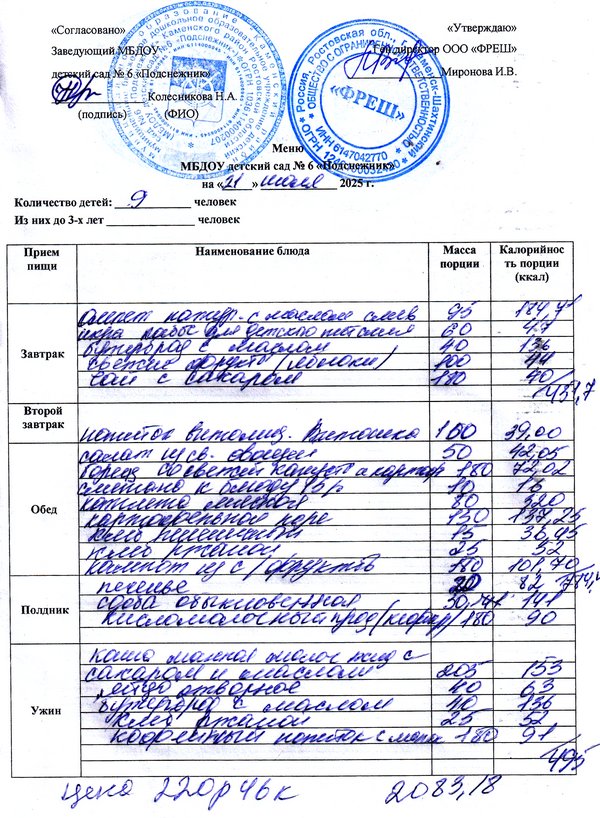 «Согласовано» «Утверждаю»
Заведующий МБДОУ Ген.директор ООО «ФРЕШ»
детский сад № 6 «Подснежник» Миронова И.В.
Колесникова Н.А.
(подпись) (ФИО)
«ФРЕШ»
ИНН 6147042770
Меню
МБДОУ детский сад № 6 «Подснежник»
на « 21 » июля 2025 г.
Количество детей: 9 человек
Из них до 3-х лет человек
Прием пищи Наименование блюда Масса порции Калорийность порции (ккал)
Завтрак
омлет натур. с маслом слив 95 184,7
икра кабач для детского питания 60 47
бутерброд с маслом 40 136
свежие фрукты (яблоки) 100 44
чай с сахаром 180 40
451,7
Второй завтрак
напиток витамин. Витошка 100 39,00
Обед
салат из св. овощей 50 42,05
борщ со свежей капустой и картоф 180 72,02
сметана к блюду 10 15
котлета мясная 80 320
картофельное пюре 130 137,25
хлеб пшеничный 15 36,45
хлеб ржаной 25 52
компот из с/фруктов 180 101,70
Полдник
печенье 20 82
сдоба обыкновенная 30 141
кисломолочный прод (кефир) 180 90
Ужин
каша манная молоч жид с
сахаром и маслом 205 153
яйцо отварное 40 63
бутерброд с маслом 40 136
хлеб ржаной 25 52
кофейный напиток с молок 180 91
495
цена 220р 46к 2083,18